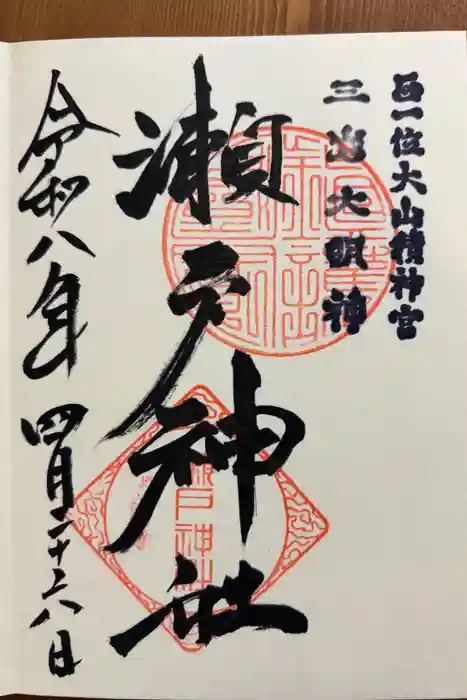 正一位大山積神宮
三島大明神
瀬戸神社
令和八年四月二十六日